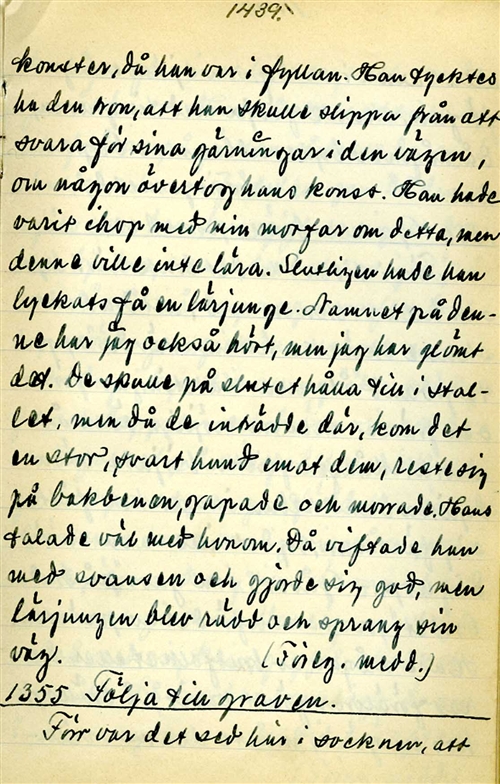 1439.
konster, då han var i fyllan. Han tycktes
ha den tron, att han skulle slippa från att
svara för sina gärningar i den vägen,
om någon övertog hans konst. Han hade
varit ihop med min morfar om detta, men
denne ville inte lära. Slutligen hade han
lyckats få en lärjunge. Namnet på den-
ne har jag också hört, men jag har glömt
det. De skulle på slutet hålla till i stal-
let, men då de inträdde där, kom det
en stor, svart hund emot dem, reste sig
på bakbenen, gapade och morrade. Hans
talade väl med honom. Då viftade han
med svansen och gjorde sig god, men
lärjungen blev rädd och sprang sin
väg. (Föreg. medd.)
1355 Följa till graven.
Förr var det sed här i socknen, att